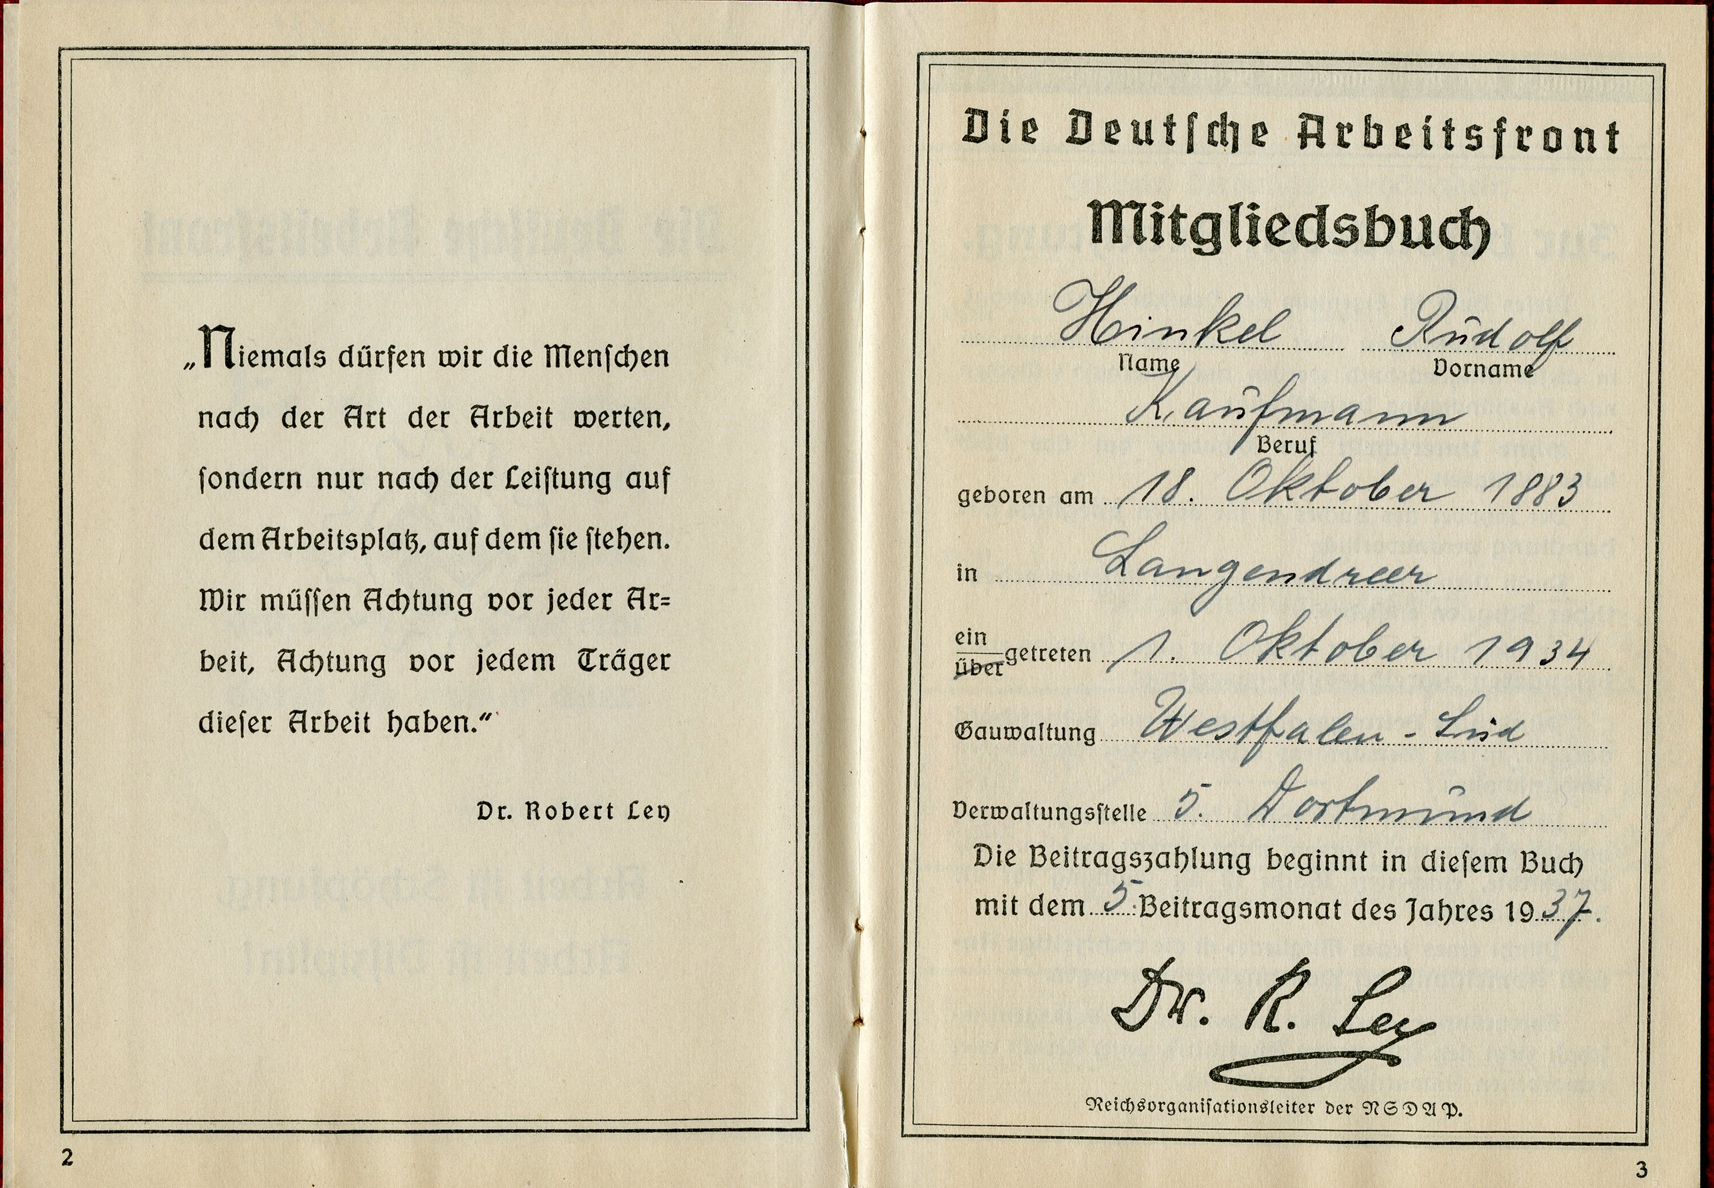 „Niemals dürfen wir die Menschen
nach der Art der Arbeit werten,
sondern nur nach der Leistung auf
dem Arbeitsplatz, auf dem sie stehen.
Wir müssen Achtung vor jeder Ar=
beit, Achtung vor jedem Träger
dieser Arbeit haben.“
Dr. Robert Ley
2
Die Deutsche Arbeitsfront
Mitgliedsbuch
Hinkel Rudolf
Name Vorname
Kaufmann
Beruf
geboren am 18. Oktober 1883
in Langendreer
ein
über getreten 1. Oktober 1934
Gauwaltung Westfalen - Süd
Verwaltungsstelle 5. Dortmund
Die Beitragszahlung beginnt in diesem Buch
mit dem 5. Beitragsmonat des Jahres 1937.
Dr. R. Ley
Reichsorganisationsleiter der NSDAP.
3